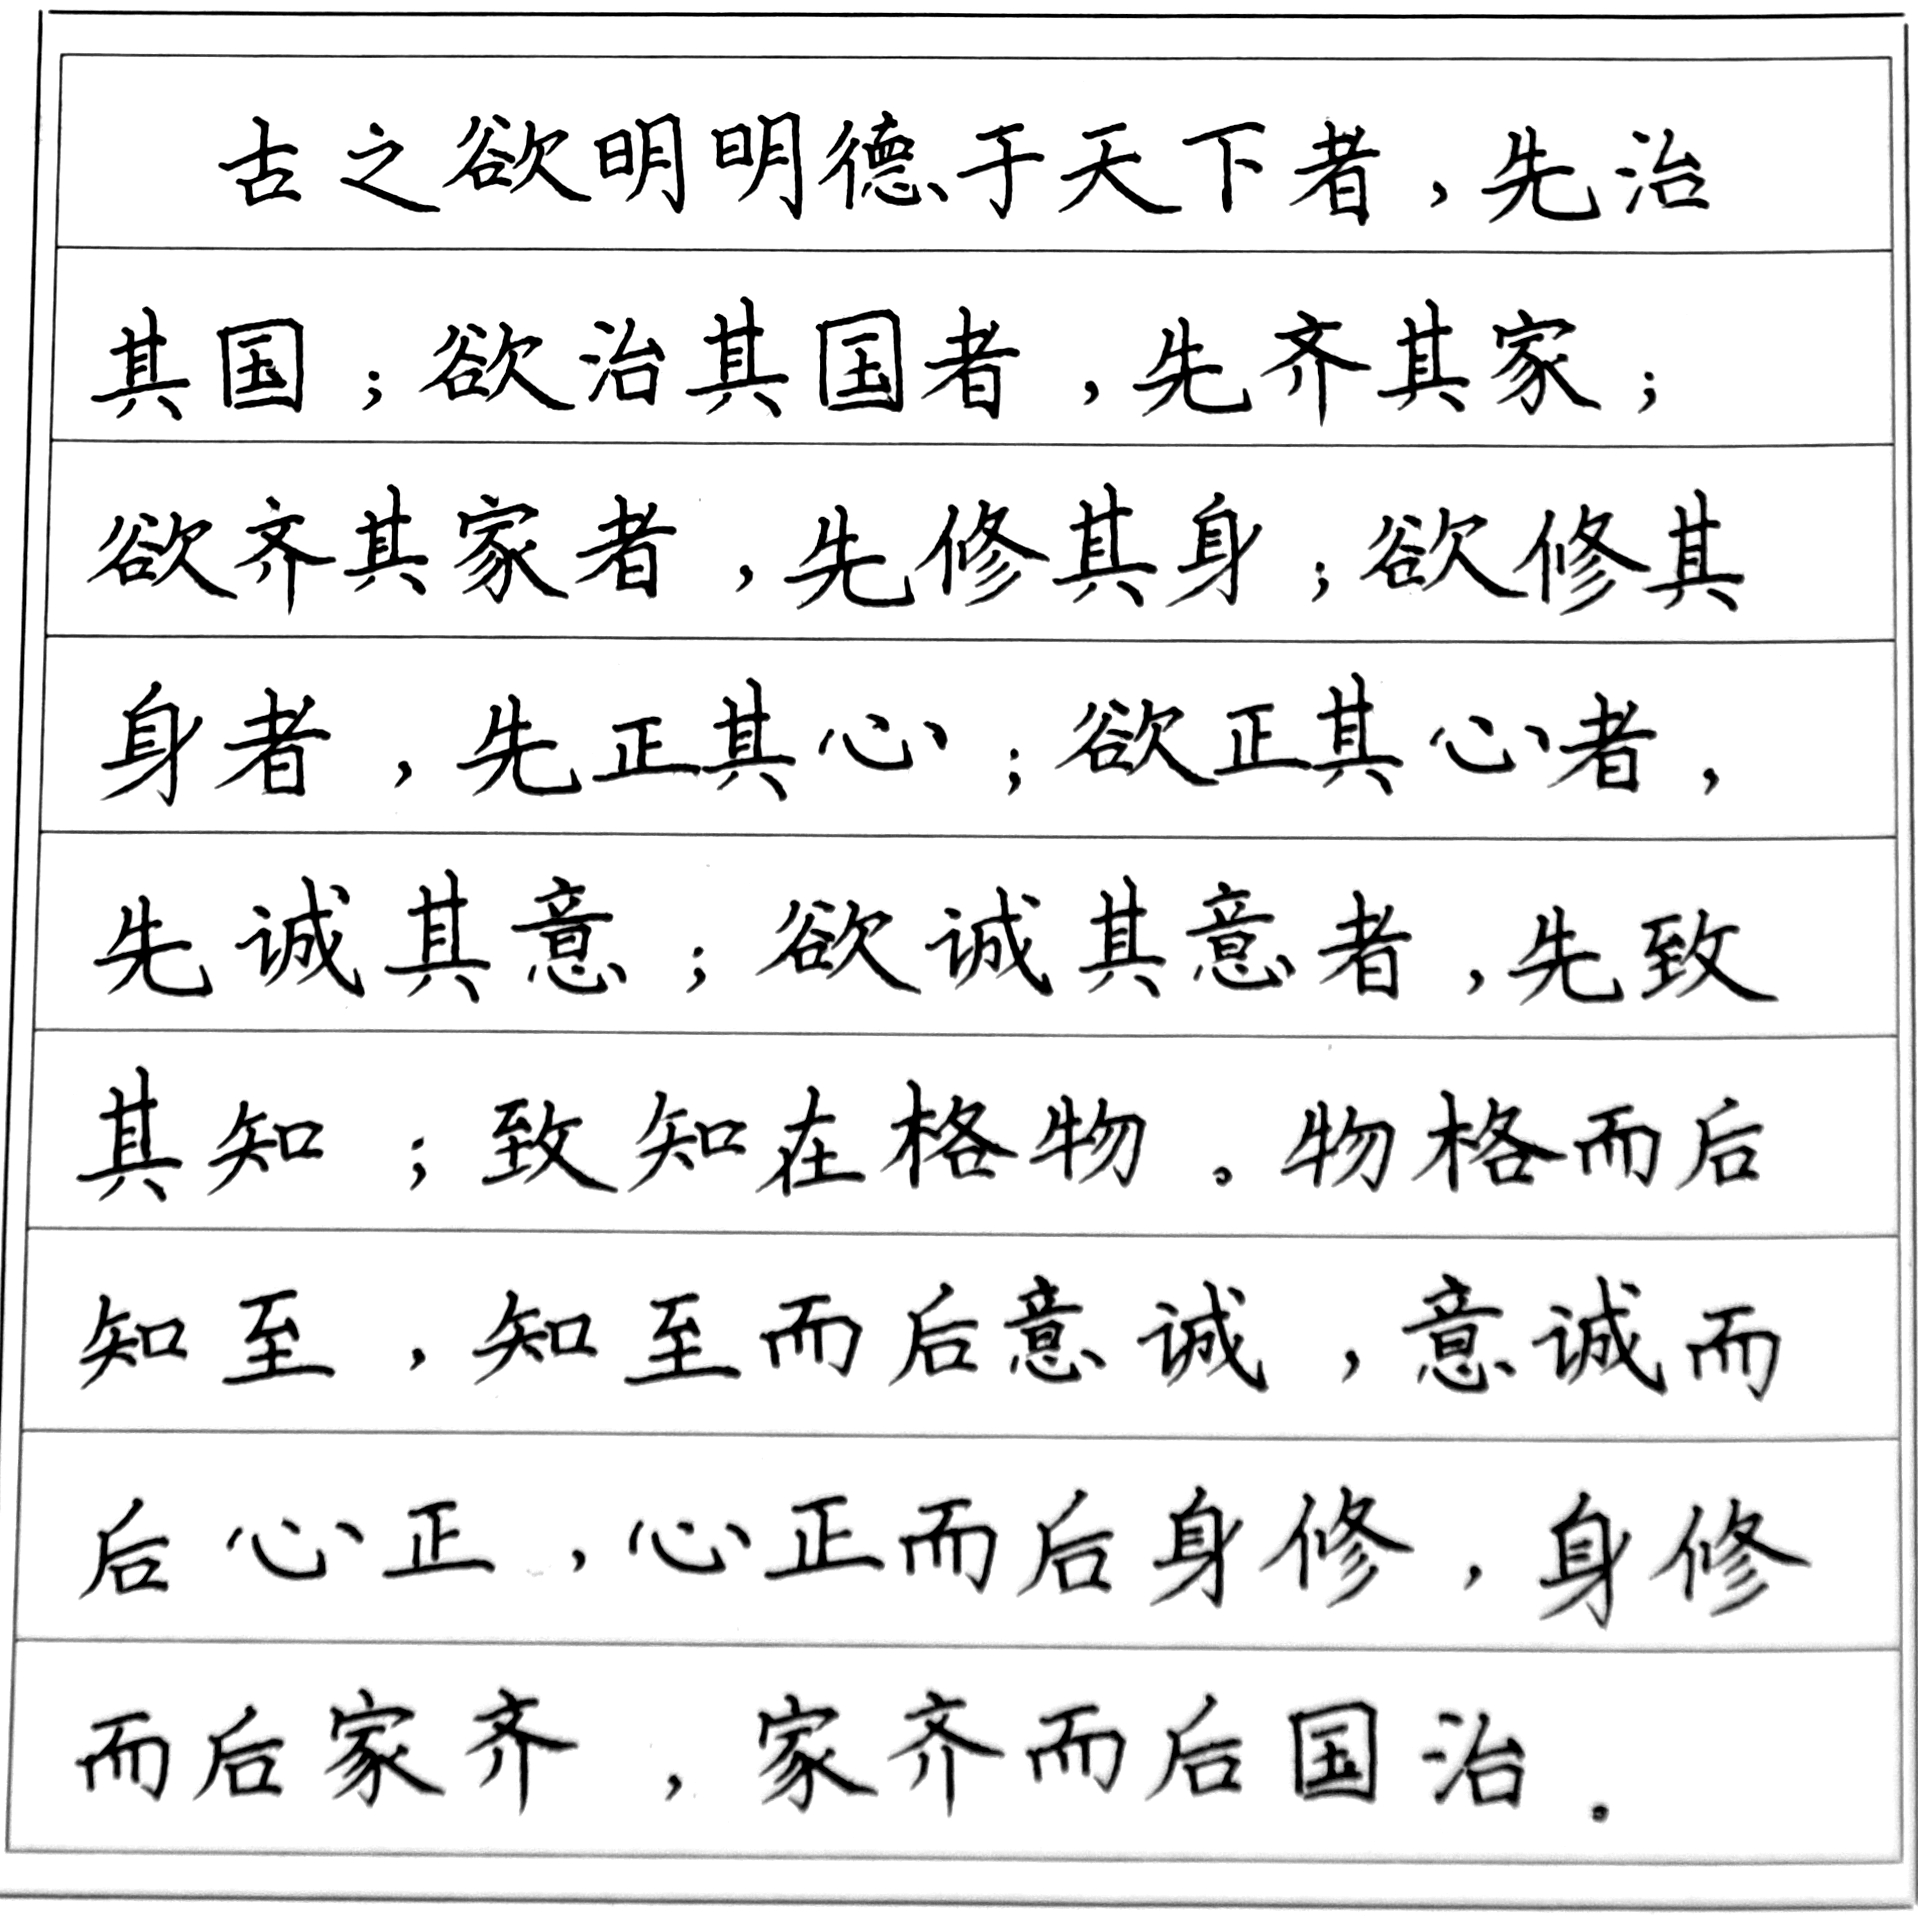 古之欲明明德于天下者，先治
其国；欲治其国者，先齐其家；
欲齐其家者，先修其身；欲修其
身者，先正其心；欲正其心者，
先诚其意；欲诚其意者，先致
其知；致知在格物。物格而后
知至，知至而后意诚，意诚而
后心正，心正而后身修，身修
而后家齐，家齐而后国治。